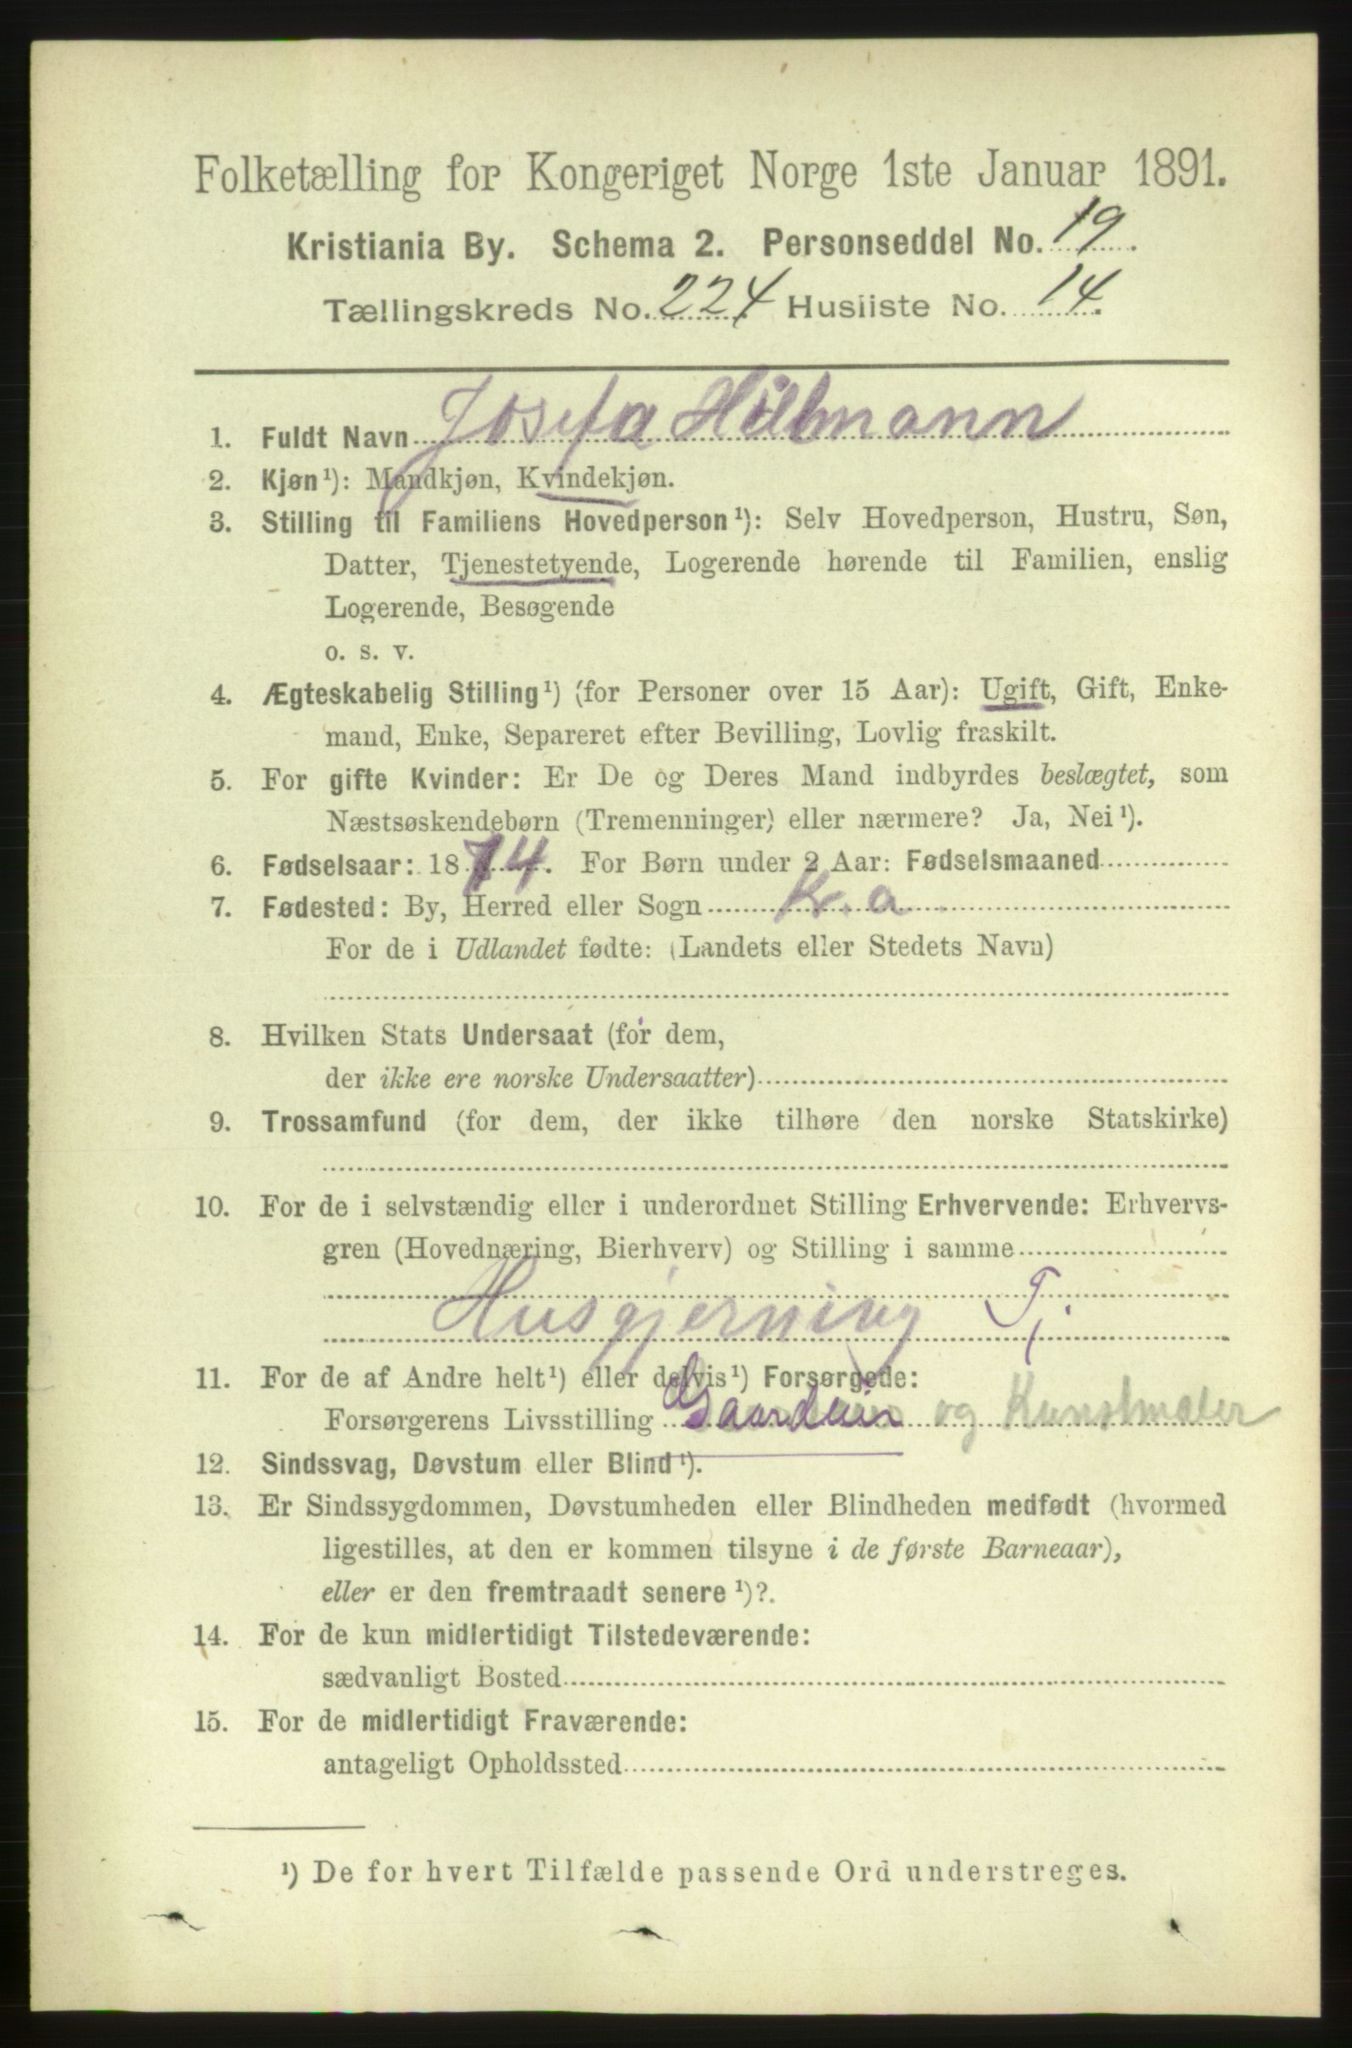 Folketælling for Kongeriget Norge 1ste Januar 1891.
Kristiania By. Schema 2. Personseddel No. 19.
Tællingskreds No. 224 Husliste No. 14.
1. Fuldt Navn Josefa Hillmann
2. Kjøn¹): Mandkjøn, Kvindekjøn.
3. Stilling til Familiens Hovedperson¹): Selv Hovedperson, Hustru, Søn,
Datter, Tjenestetyende, Logerende hørende til Familien, enslig
Logerende, Besøgende
o. s. v.
4. Ægteskabelig Stilling¹) (for Personer over 15 Aar): Ugift, Gift, Enke-
mand, Enke, Separeret efter Bevilling, Lovlig fraskilt.
5. For gifte Kvinder: Er De og Deres Mand indbyrdes beslægtet, som
Næstsøskendebørn (Tremenninger) eller nærmere? Ja, Nei¹).
6. Fødselsaar: 1874. For Børn under 2 Aar: Fødselsmaaned
7. Fødested: By, Herred eller Sogn Kr.a
For de i Udlandet fødte: (Landets eller Stedets Navn)
8. Hvilken Stats Undersaat (for dem,
der ikke ere norske Undersaatter)
9. Trossamfund (for dem, der ikke tilhøre den norske Statskirke)
10. For de i selvstændig eller i underordnet Stilling Erhvervende: Erhvervs-
gren (Hovednæring, Bierhverv) og Stilling i samme
Husgjerning Tj.
11. For de af Andre helt¹) eller delvis¹) Forsørgede:
Forsørgerens Livsstilling Gaardeier og Kunstmaler
12. Sindssvag, Døvstum eller Blind¹).
13. Er Sindssygdommen, Døvstumheden eller Blindheden medfødt (hvormed
ligestilles, at den er kommen tilsyne i de første Barneaar),
eller er den fremtraadt senere¹)?.
14. For de kun midlertidigt Tilstedeværende:
sædvanligt Bosted
15. For de midlertidigt Fraværende:
antageligt Opholdssted
¹) De for hvert Tilfælde passende Ord understreges.